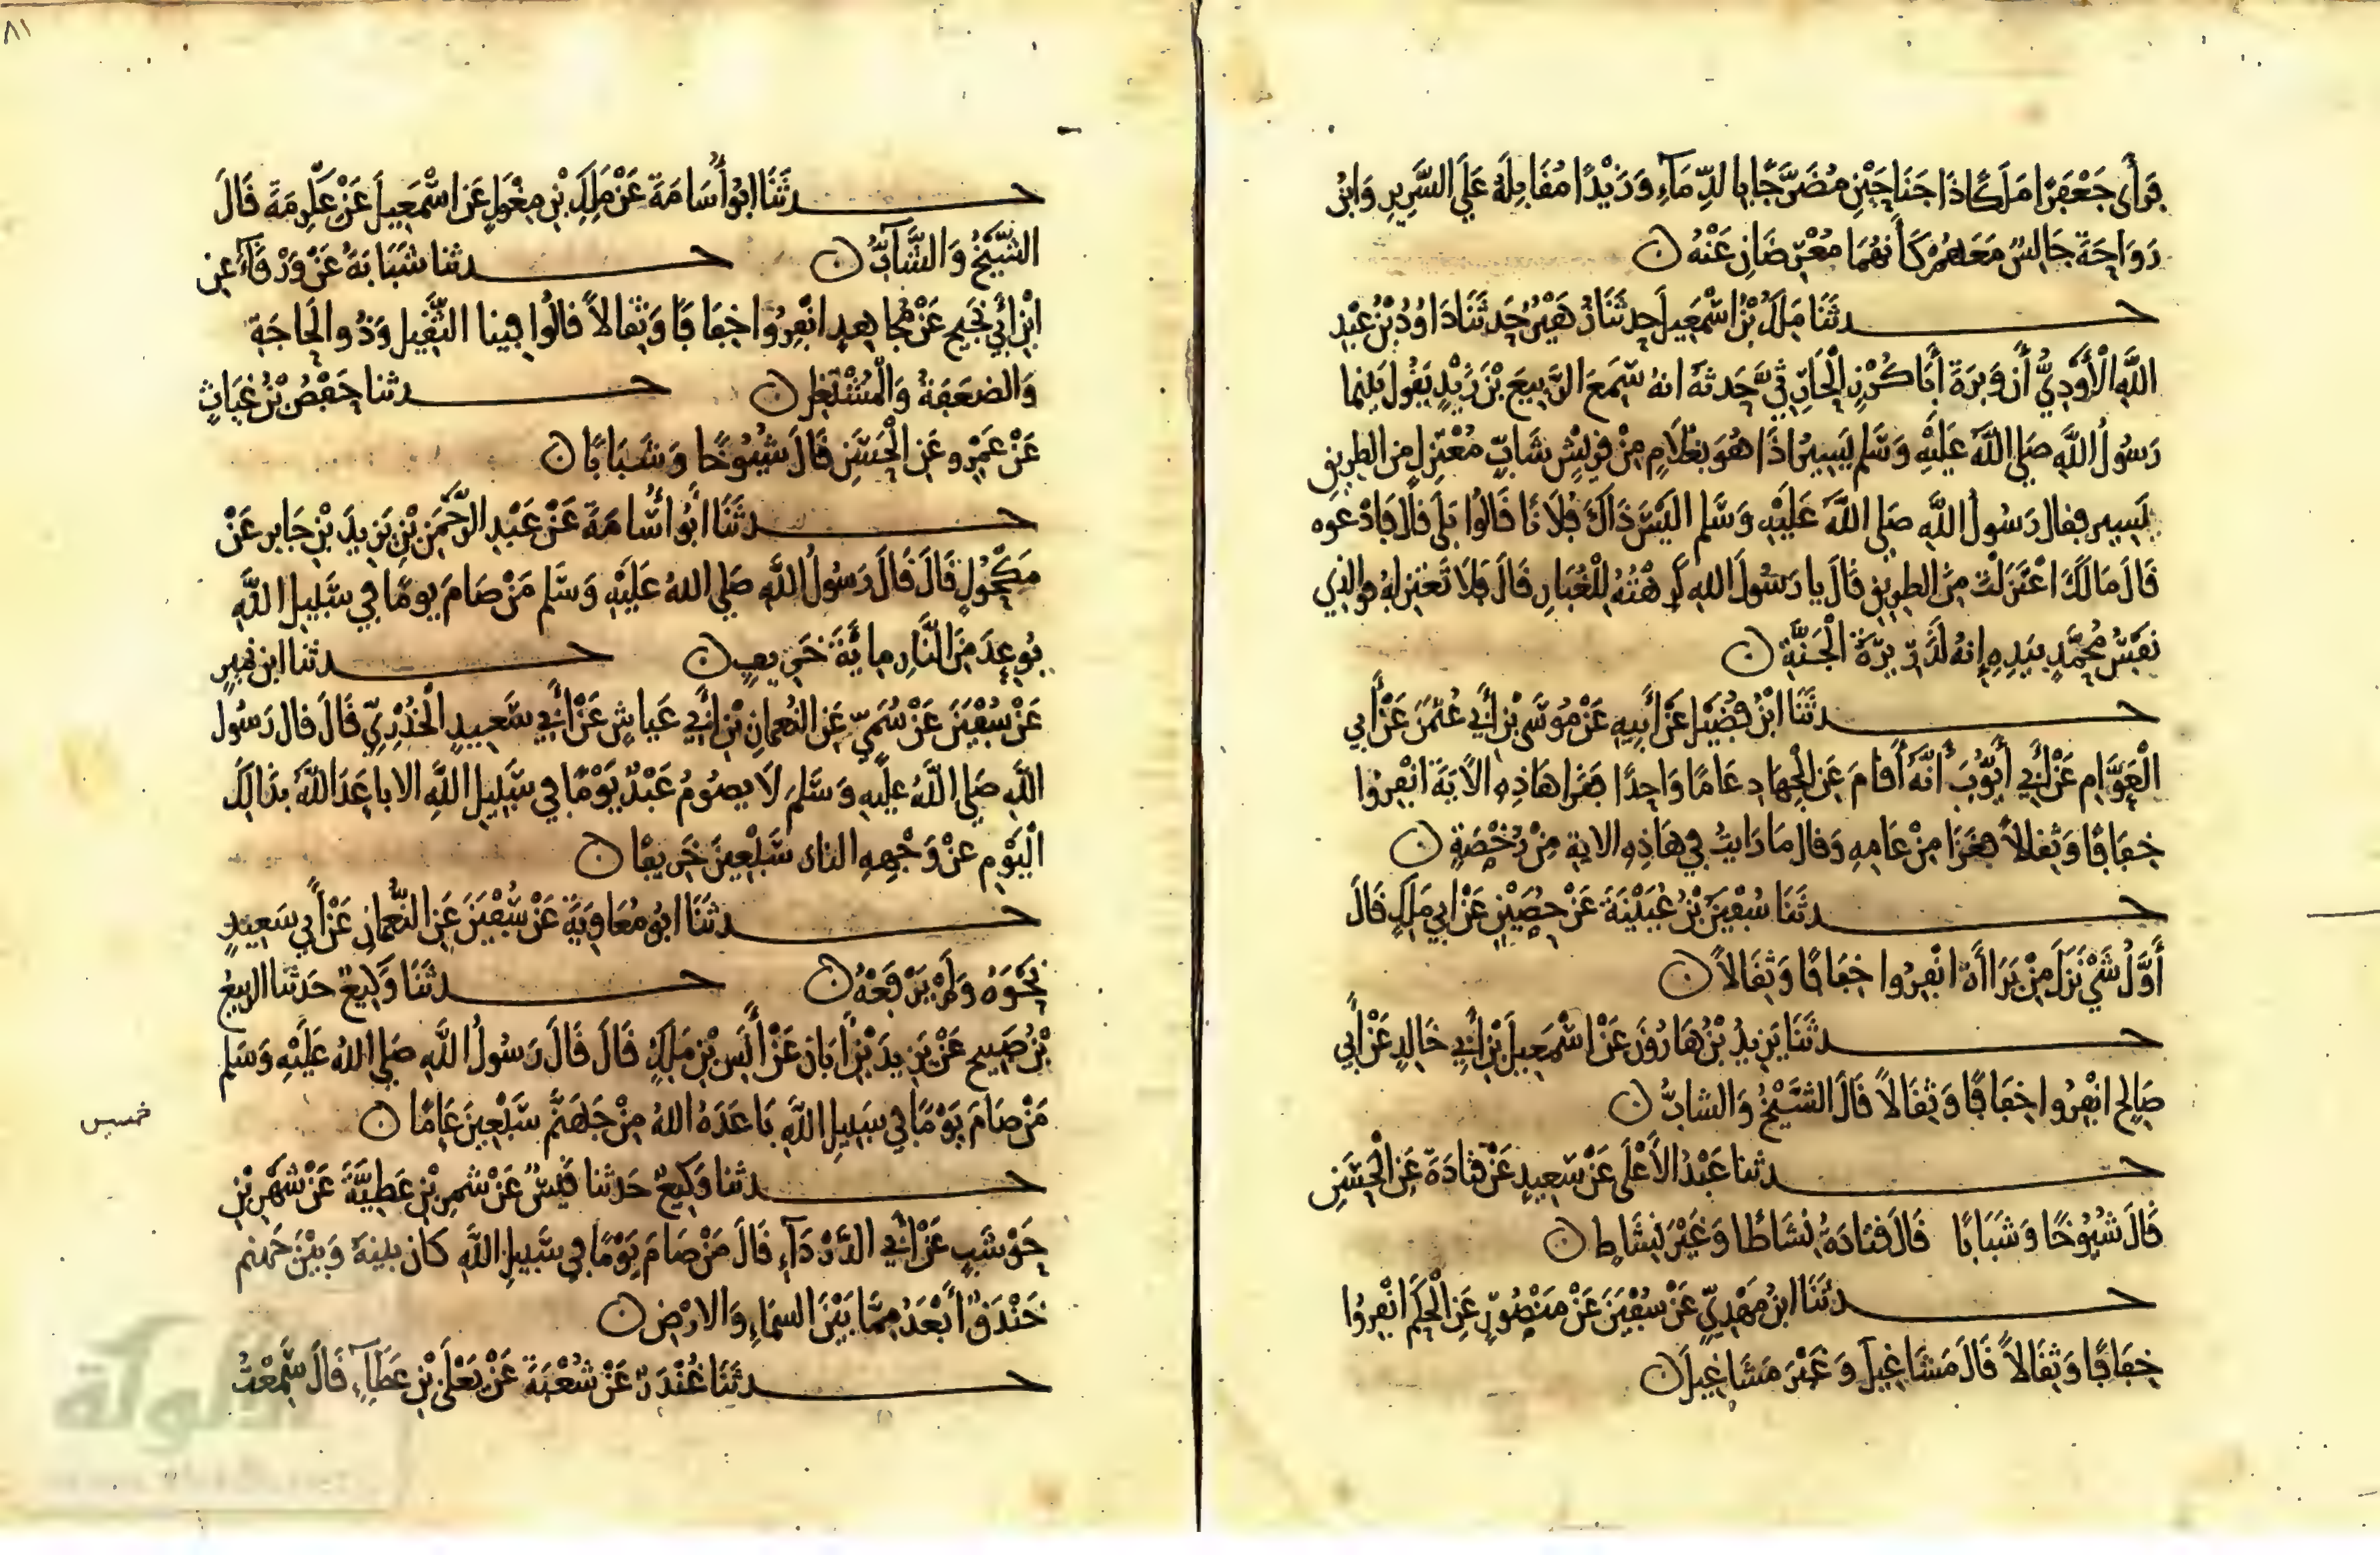 فرأى جَعْفَرًا مَلَكًا ذَا جَنَاحَيْنِ مُضَرَّجًا بالدِّمَآءِ وَزَيْدًا مُقَابِلَهُ عَلَى السَّرِيرِ وَابْنُ
رَوَاحَةَ جَالِسٌ مَعَهُمْ كَأَنهُمَا مُعْرِضَانِ عَنْهُ
حدثَنَا مَلِكُ بْنُ اسْمَعِيلَ حدثَنَا زُهَيْرٌ حَدثَنَا دَاوُدُ بْنُ عَبْدِ
اللَّهِ الْأَوْدِيُّ أَن وَبَرَةَ أَبَا كُرْزٍ الْحَارِثِيَّ حَدثهُ انهُ سَمِعَ الرَّبِيعَ بْنَ زَيْدٍ يَقُولُ بَيْنما
رَسُولُ اللَّهِ صَلى اللَّهُ عَلَيْهِ وَسَلم يَسِيرُ اذَا هُوَ بغُلَامٍ مِنْ قُرَيْشٍ شَابٍّ مُعْتَزِلٍ مِنَ الطرِيقِ
يَسِيرُ فقال رَسُولُ اللَّهِ صَلى اللَّهُ عَلَيْهِ وَسَلم الَيْسَ ذَاكَ فُلَانًا قَالُوا بَلَى قَالَ فَادْعُوهُ
قَالَ مَا لَكَ اعْتَزَلْتَ مِنَ الطرِيقِ قَالَ يا رَسُولَ اللهِ كَرِهْتُهُ لِلْغُبَارِ قَالَ فَلَا تَعْتَزِلهُ فوالذِي
نَفْسُ مُحَمَّدٍ بيَدِهِ إنهُ لَذَرِيرَةُ الْجَنَّةِ
حدثَنَا ابْنُ فُضَيْلٍ عَنْ أَبِيهِ عَنْ مُوسَى بْنِ أَبِي عُثْمَنَ عَنْ أَبِي
الْعَوَّامِ عَنْ أَبِي أَيُّوبَ أَنَّهُ أَقَامَ عَنِ الْجِهَادِ عَامًا وَاحِدًا فقَرَا هَاذِهِ الآيَةَ انْفِرُوا
خِفَافًا وَثِقَالاً فغَزَا مِنْ عَامِهِ وَقَالَ مَا رَايْتُ فِي هَاذِهِ الايةِ مِنْ رُخْصَةٍ
حدثَنَا سُفْيَنُ بْنُ عُيَيْنَةَ عَنْ حُصَيْنٍ عَنْ أبِي مَلِكٍ قَالَ
أَوَّلُ شَيْ نَزَلَ مِنْ بَرَاأَة انْفِرُوا خِفَافًا وَثِقَالاً
حدثَنَا يَزِيدُ بْنُ هَارُونَ عَنْ اسْمَعِيلَ بْنِ أَبِي خَالِدٍ عَنْ أَبِي
صَالِحٍ انْفِرُوا خِفَافًا وَثِقَالاً قَالَ الشَّيْخُ وَالشابُّ
حدثنا عَبْدُ الأَعْلَى عَنْ سَعِيدٍ عَنْ قتَادَةَ عَنِ الْحَسَنِ
قَالَ شُيُوخًا وَشَبَابًا قَالَ قتَادَةُ نشَاطًا وَغَيْرَ نِشَاطٍ
حدثَنَا ابنُ مَهْدِيٍّ عَنْ سُفْيَنَ عَنْ مَنْصُورٍ عَنِ الْحَكَمِ انْفِرُوا
خِفَافًا وَثِقَالاً قَالَ مَشَاغِيلَ وَغَيْرَ مَشَاغِيلَ
٨١
حدثَنَا ابُو أُسَامَةَ عَنْ مَلِكِ بْنِ مِغْوَلٍ عَنِ اسْمَعِيلَ عَنْ عِكْرِمَةَ قَالَ
الشَّيْخُ وَالشَّابُّ حدثنا شَبَابَةُ عَنْ وَرْقَآءَ عنِ
ابْنِ أَبِي نَجِيحٍ عَنْ مُجَاهِدٍ انْفِرُوا خِفَافًا وَثِقَالاً قَالُوا فِينا الثَّقِيل وَذُو الْحَاجَةِ
وَالضعَفَةُ وَالْمُشْتَغِل حدثنا حَفْصُ بْنُ غِيَاثٍ
عَنْ عَمْرٍو عَنِ الْحَسَنِ قَالَ شُيُوخًا وَشَبَابًا
حدثَنَا أَبُو أُسَامَةَ عَنْ عَبْدِ الرَّحْمَنِ بْنِ يَزِيدَ بْنِ جَابِرٍ عَنْ
مَكْحُولٍ قَالَ قَالَ رَسُولُ اللَّهِ صَلى اللهُ عَلَيْهِ وَسَلم مَنْ صَامَ يومًا فِي سَبِيلِ اللَّهِ
بُوعِدَ مِنَ النَّارِ مِايَةَ خَرِيفٍ حدثنا ابن نُمَيرٍ
عَنْ سُفْيَنَ عَنْ سُمَيٍّ عَنِ النُّعْمَانِ بْنِ أَبِي عَياشٍ عَنْ أَبِي سَعِيدٍ الْخُدْرِيِّ قَالَ قال رَسُول
اللَّهِ صَلى اللَّهُ عليْهِ وَسَلمَ لَا يصُومُ عَبْدٌ يَوْمًا فِي سَبِيلِ اللَّهِ الا بَاعَدَ اللَّهُ بذَالِكَ
الْيَوْمِ عَنْ وَجْهِهِ النارَ سَبْعِينَ خَرِيفًا
حدثَنَا ابُو مُعَاوِيَةَ عَنْ سُفْيَنَ عَنِ النُّعْمَانِ عَنْ أَبِي سَعِيدٍ
نَحْوَهُ وَلَمْ يَرْفَعْهُ حدثَنَا وَكِيعٌ حَدثنا الربِيعُ
بْنُ صَبِيحٍ عَنْ يَزِيدَ بْنِ أَبَانَ عَنْ أَنَسِ بْنِ مَلِكٍ قَالَ قَالَ رَسُولُ اللَّهِ صَلى اللهُ عَلَيْهِ وَسَلم
مَنْ صَامَ يَوْمًا فِي سَبِيلِ اللَّهِ بَاعَدَهُ اللهُ مِنْ جَهَنَّمَ سَبْعِينَ عَامًا
خمسين
حدثنا وَكِيعٌ حَدثنا قَيْسٌ عَنْ شِمْرِ بْنِ عَطِيَّةَ عَنْ شَهْرِ بْنِ
حَوْشَبٍ عَنْ أَبِي الدَّرْدَآءِ قَالَ مَنْ صَامَ يَوْمًا فِي سَبِيلِ اللَّهِ كَانَ بينَهُ وَبَيْنَ جَهَنم
خَنْدَقٌ أَبْعَدُ مِمَّا بَيْنَ السمَاءِ وَالارْضِ
حدثَنَا غُنْدَرٌ عَنْ شُعْبَةَ عَنْ يَعْلَى بْنِ عَطَآءٍ قَالَ سَمِعْتُ
الألوكة